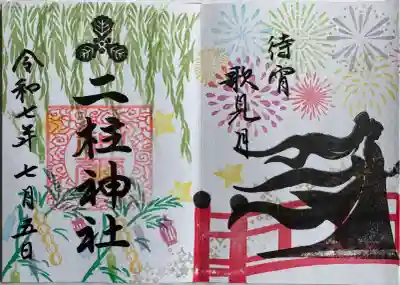 待宵
歌見月
二柱神社
令和七年 七月五日